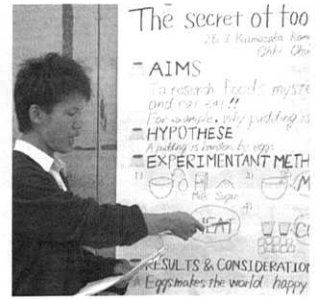 The secret of foo
AIMS
To research foods myste
and not eat!!
For example, why pudding is
HYPOTHESE
A pudding is harden by eggs
EXPERIMENTANT METH
1)
2)
Milk Sugar
M
4)
HEAT
C
RESULTS & CONSIDERATION
Eggs makes the world happy